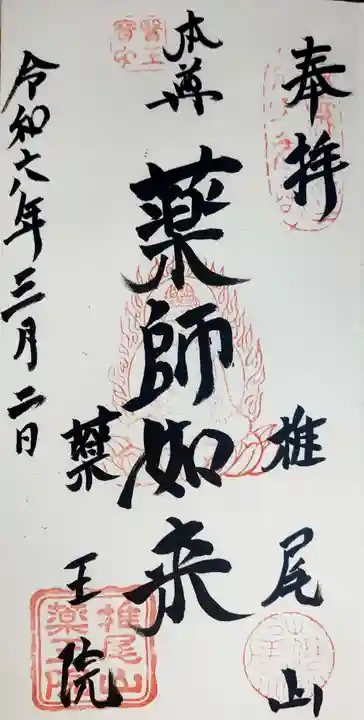 奉拝
椎尾山
本尊
薬師如来
薬王院
令和六年三月二日
椎尾山
薬王院